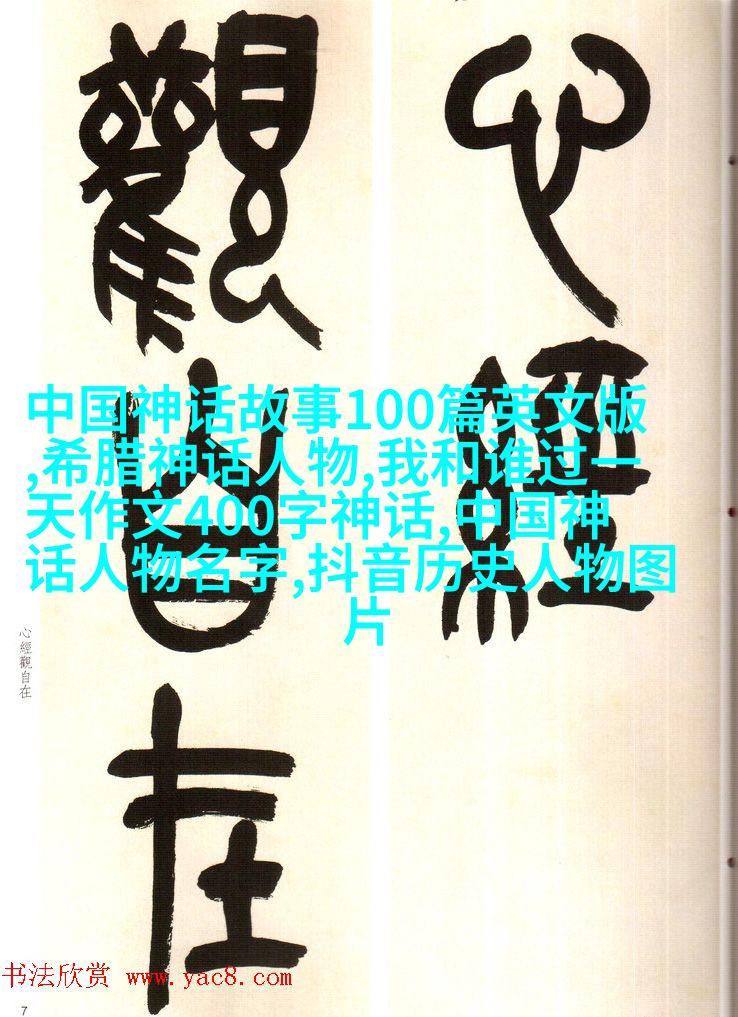 心經
觀自在
中国神话故事100篇英文版
,希腊神话人物,我和谁过一
天作文400字神话,中国神
话人物名字,抖音历史人物图
片
心經觀自在
书法欣赏 www.yac8.com
7